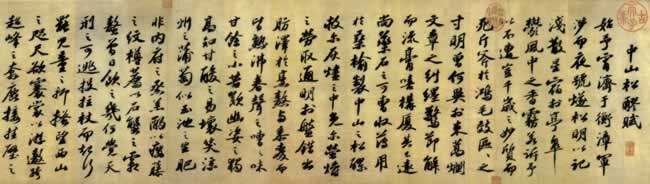 中山松醪賦
始予宵濟於衡漳軍
涉而夜號燧松明以記
淺散星宿於亭皋
鬱風中之香霧若訴予
以不遭豈千歲之妙質而
死斤斧於鴻毛效區區之
寸明曾何異於束蒿爛
文章之糾纏驚節解
而流膏嗟構廈其已遠
尚藥石之可曹收薄用
於桑榆製中山之松醪
救爾灰燼之中免爾螢爝
之勞取通明於盤錯出
肪澤於烹熬與黍麥而
皆熟沸舂聲之嘈嘈味
甘餘之小苦歎幽姿之獨
高知甘酸之易壞笑涼
州之蒲萄似玉池之生肥
非內府之蒸羔酌以癭藤
之紋樽薦以石蟹之霜
螯曾日飲之幾何覺天
刑之可逃投拄杖而起行
罷兒童之抑搔望西山
之咫尺欲褰裳以游遨跨
超峰之奔鹿接挂壁之